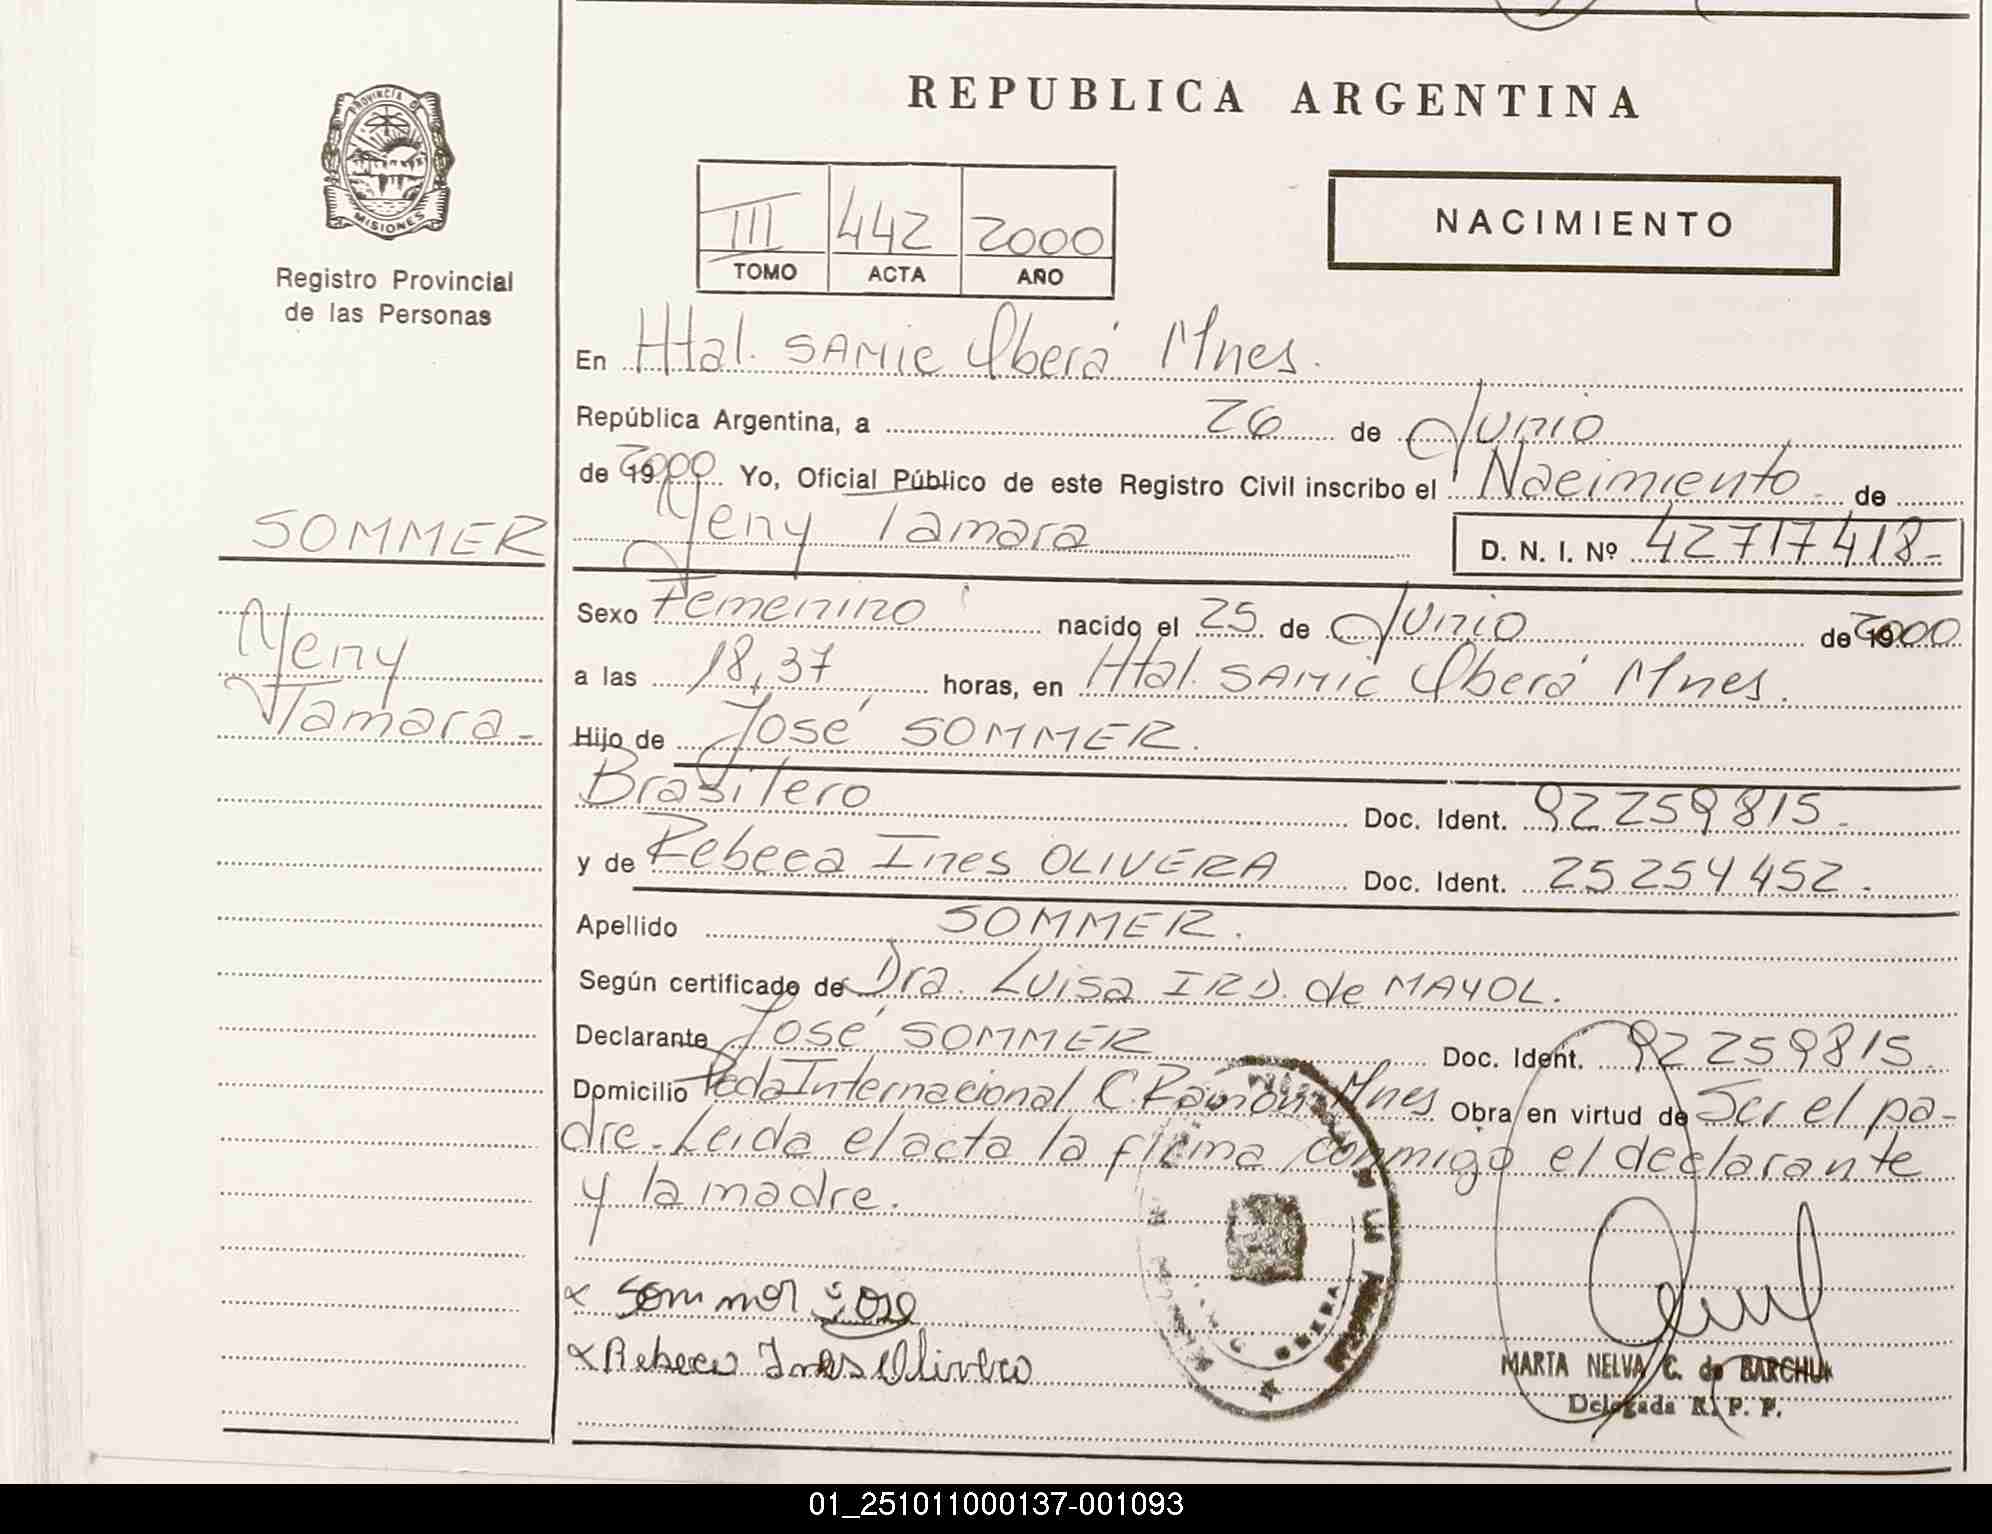 REPUBLICA ARGENTINA
PROVINCIA D
MISIONES
Registro Provincial
de las Personas
III 442 2000
TOMO ACTA AÑO
NACIMIENTO
En Htal. SAMIC Oberá Mnes.
República Argentina, a 26 de Junio
de 19 2000 Yo, Oficial Público de este Registro Civil inscribo el Nacimiento de
Yeny Tamara D. N. I. Nº 42717418-
SOMMER
Yeny
Tamara-
Sexo Femenino nacido el 25 de Junio de 19 2000
a las 18,37 horas, en Htal. SAMIC Oberá Mnes.
Hijo de José SOMMER.
Brasilero Doc. Ident. 92259815-
y de Rebeca Ines OLIVERA Doc. Ident. 25254452-
Apellido SOMMER.
Según certificado de Dra. Luisa IRD. de MAYOL.
Declarante José SOMMER Doc. Ident. 92259815-
Domicilio Pcda Internacional C. Ramón Mnes Obra en virtud de Ser el pa-
dre- Leida el acta la firma conmigo el declarante
y la madre.
Sommer Jose
Rebeca Ines Olivera
OBERA
MARTA NELVA C. de BARCHUK
Delegada R. P. P.
01_251011000137-001093